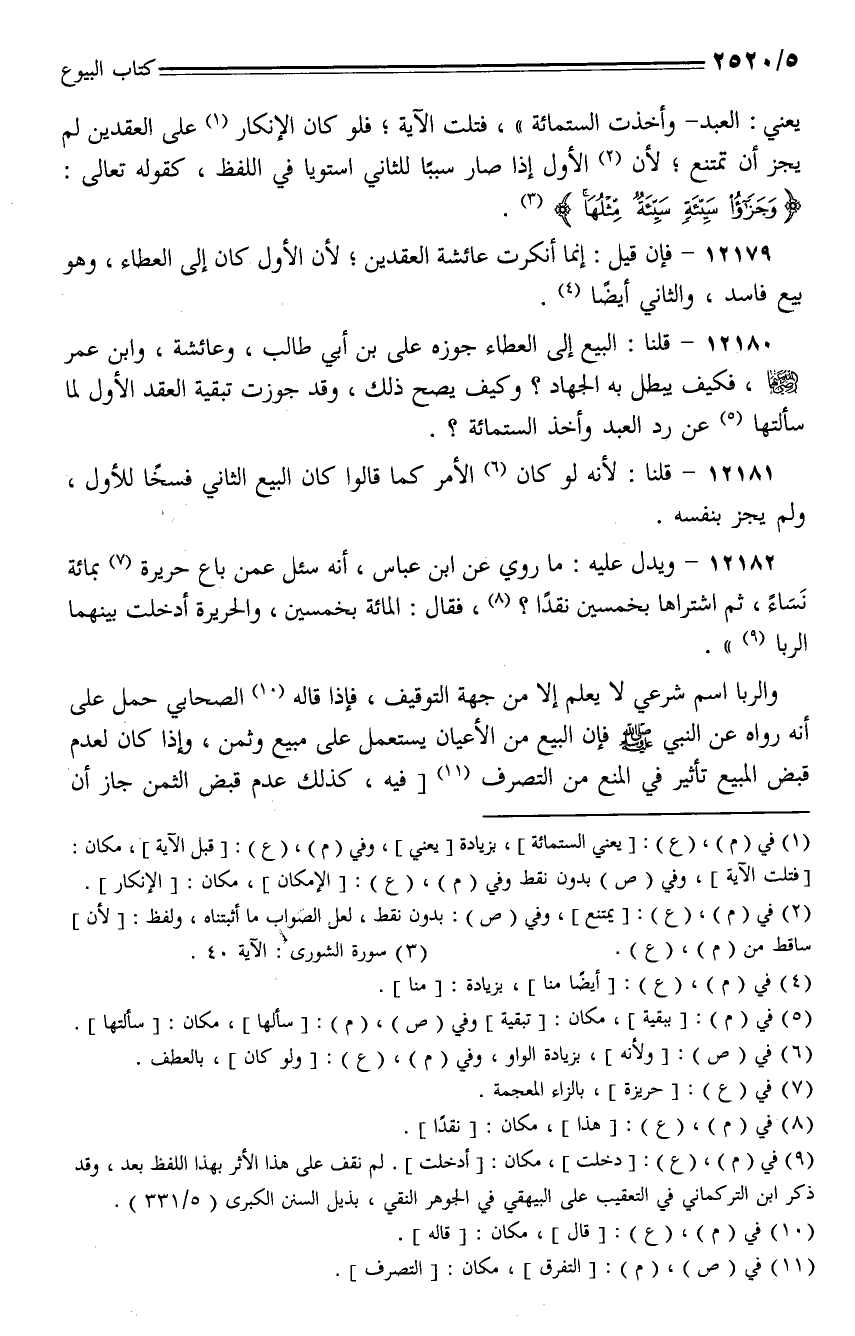 ٢٥٢٠/٥ كتاب البيوع
يعني : العبد- وأخذت الستمائة » ، فتلت الآية ؛ فلو كان الإنكار (١) على العقدين لم
يجز أن تمتنع ؛ لأن (٢) الأول إذا صار سببًا للثاني استويا في اللفظ ، كقوله تعالى :
﴿ وَجَزَٰٓؤُا۟ سَيِّئَةٍ سَيِّئَةٌ مِّثْلُهَا ﴾ (٣) .
١٢١٧٩ – فإن قيل : إنما أنكرت عائشة العقدين ؛ لأن الأول كان إلى العطاء ، وهو
بيع فاسد ، والثاني أيضًا (٤) .
١٢١٨٠ – قلنا : البيع إلى العطاء جوزه على بن أبي طالب ، وعائشة ، وابن عمر
، فكيف يبطل به الجهاد ؟ وكيف يصح ذلك ، وقد جوزت تبقية العقد الأول لما
سألتها (٥) عن رد العبد وأخذ الستمائة ؟ .
١٢١٨١ – قلنا : لأنه لو كان (٦) الأمر كما قالوا كان البيع الثاني فسخًا للأول ،
ولم يجز بنفسه .
١٢١٨٢ – ويدل عليه : ما روي عن ابن عباس ، أنه سئل عمن باع حريرة (٧) بمائة
نَسَاءً ، ثم اشتراها بخمسين نقدًا ؟ (٨) ، فقال : المائة بخمسين ، والحريرة أدخلت بينهما
الربا (٩) » .
والربا اسم شرعي لا يعلم إلا من جهة التوقيف ، فإذا قاله (١٠) الصحابي حمل على
أنه رواه عن النبي ﷺ فإن البيع من الأعيان يستعمل على مبيع وثمن ، وإذا كان لعدم
قبض المبيع تأثير في المنع من التصرف (١١) [ فيه ، كذلك عدم قبض الثمن جاز أن
(١) في ( م ) ، ( ع ) : [ يعني الستمائة ] ، بزيادة [ يعني ] ، وفي ( م ) ، ( ع ) : [ قبل الآية ] ، مكان :
[ فتلت الآية ] ، وفي ( ص ) بدون نقط وفي ( م ) ، ( ع ) : [ الإمكان ] ، مكان : [ الإنكار ] .
(٢) في ( م ) ، ( ع ) : [ يمتنع ] ، وفي ( ص ) : بدون نقط ، لعل الصواب ما أثبتناه ، ولفظ : [ لأن ]
ساقط من ( م ) ، ( ع ) . (٣) سورة الشورى : الآية ٤٠ .
(٤) في ( م ) ، ( ع ) : [ أيضًا منا ] ، بزيادة : [ منا ] .
(٥) في ( م ) : [ ببقية ] ، مكان : [ تبقية ] وفي ( ص ) ، ( م ) : [ سألها ] ، مكان : [ سألتها ] .
(٦) في ( ص ) : [ ولأنه ] ، بزيادة الواو ، وفي ( م ) ، ( ع ) : [ ولو كان ] ، بالعطف .
(٧) في ( ع ) : [ حريزة ] ، بالزاء المعجمة .
(٨) في ( م ) ، ( ع ) : [ هذا ] ، مكان : [ نقدًا ] .
(٩) في ( م ) ، ( ع ) : [ دخلت ] ، مكان : [ أدخلت ] . لم نقف على هذا الأثر بهذا اللفظ بعد ، وقد
ذكر ابن التركماني في التعقيب على البيهقي في الجوهر النقي ، بذيل السنن الكبرى ( ٣٣١/٥ ) .
(١٠) في ( م ) ، ( ع ) : [ قال ] ، مكان : [ قاله ] .
(١١) في ( ص ) ، ( م ) : [ التفرق ] ، مكان : [ التصرف ] .